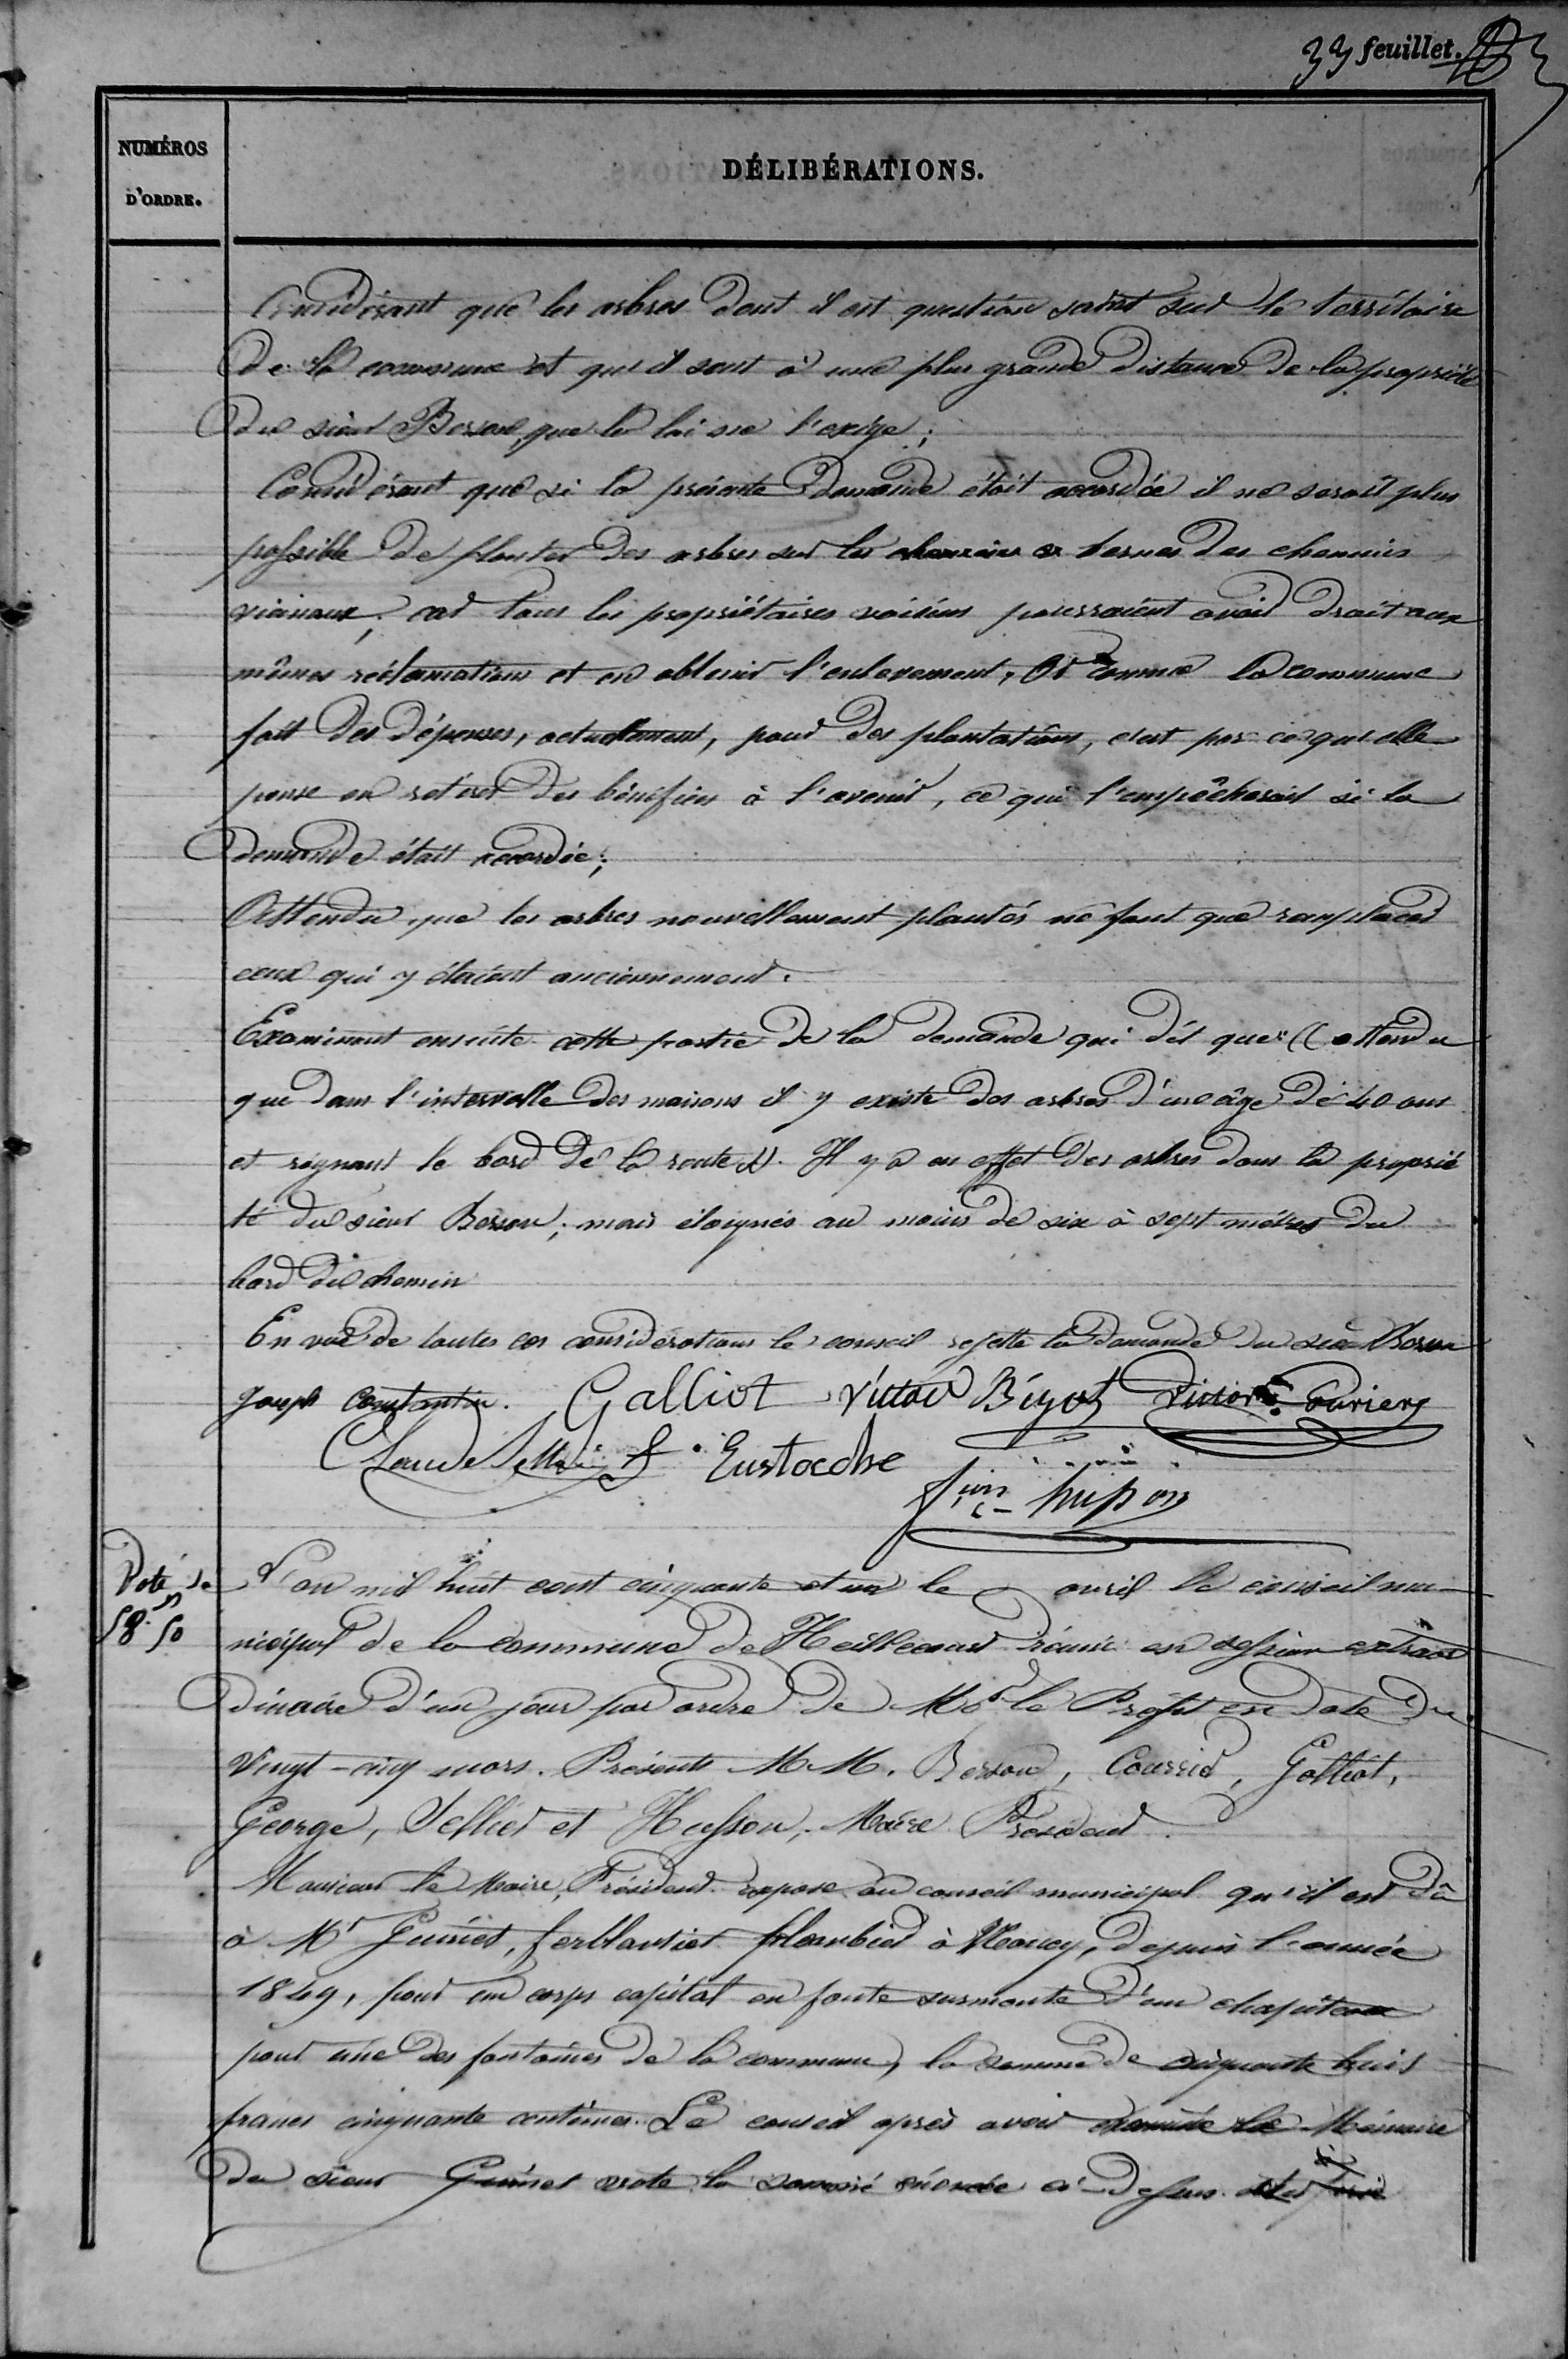 33 feuillet.
NUMÉROS
D'ORDRE.
DÉLIBÉRATIONS.
Considérant que les arbres dont il est question sont sur le territoire
de la commune et qu'il sont à une plus grande distance de la propriété
du sieur Besson, que la loi ne l'exige ;
Considérant que si la présente demande était accordée il ne serait plus
possible de planter des arbres sur les chemins et bernes des chemins
vicinaux ; car tous les propriétaires voisins pourraient avoir droit aux
mêmes réclamations et en obtenir l'enlevement, Or comme la commune
fait des dépenses, actuellement, pour des plantations, c'est par ce qu'elle
pense en retirer des bénéfices à l'avenir, ce qui l'empêcherait si la
demande était accordée ;
Attendu que les arbres nouvellement plantés ne font que remplacer
ceux qui y étaient anciennement.
Examinant ensuite cette partie de la demande qui dit que « attendu
que dans l'intervalle des maisons il y existe des arbres d'un âge de 40 ans
et régnant le bord de la route ». Il y a en effet des arbres dans la proprié
té du sieur Besson ; mais éloignés au moins de six à sept mètres du
bord du chemin
En vue de toutes ces considérations le conseil rejette la demande du sieur Besson
Joseph Constantin. Galliot Victor Bigot Victor
Claude Eustache
Vote de
58 f 50
L'an mil huit cent cinquante et un le avril le conseil mu-
nicipal de la commune de Heillecourt réuni en session extraor
dinaire d'un jour par ordre de Mr le Préfet en date du
Vingt-cinq mars. Présents M.M. Besson, Courrier, Galliot,
George, Sellier et Husson, Maire Président.
Monsieur le Maire, Président expose au conseil municipal qu'il est dû
à Mr Guinet, ferblantier plombier à Nancy, depuis l'année
1849, pour un corps capital en fonte surmonté d'un chapiteau
pour une des fontaines de la commune, la somme de cinquante huit
francs cinquante centimes. Le conseil après avoir examiné le Mémoire
du sieur Guinet vote la somme énoncée ci-dessus.